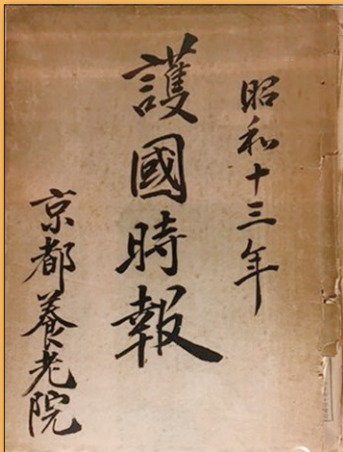 昭和十三年
護國時報
京都養老院